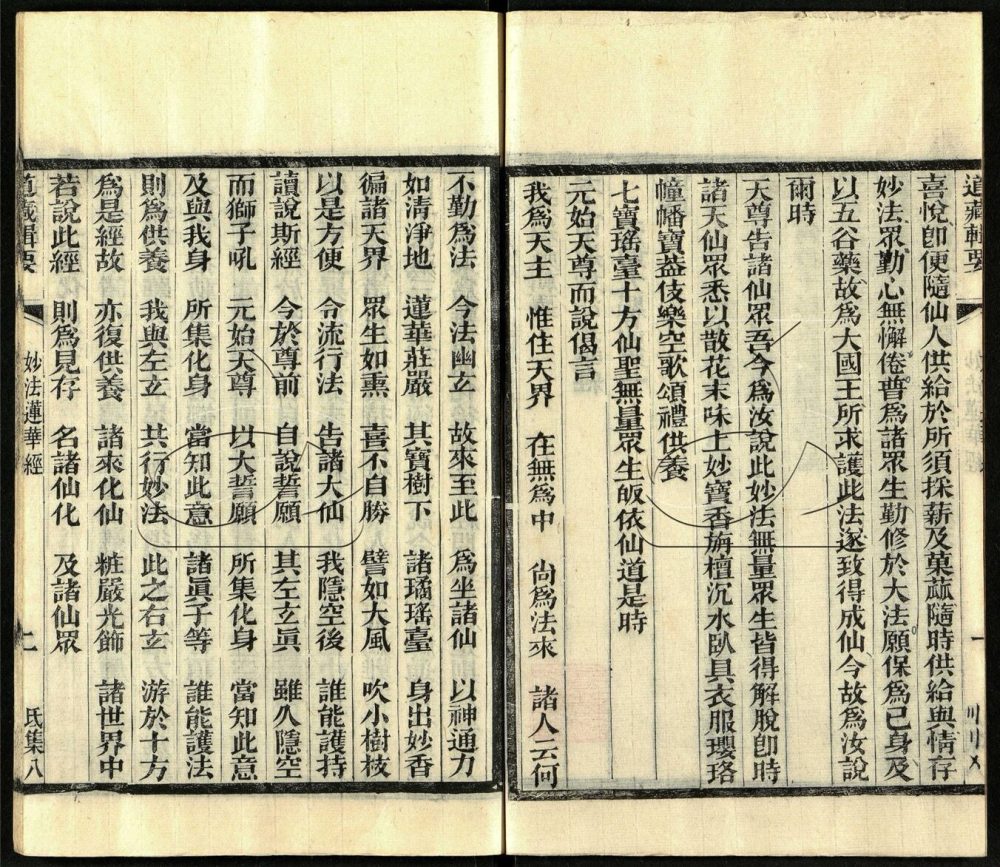 道藏輯要
喜悅卽便隨仙人供給於所須採薪及菓蓏隨時供給與情存
妙法眾勤心無懈倦普爲諸眾生勤修於大法願保爲己身及
以五谷藥故爲大國王所求護此法遂致得成仙今故爲汝說
爾時
天尊告諸仙眾吾今爲汝說此妙法無量眾生皆得解脫卽時
諸天仙眾悉以散花末味上妙寶香旃檀沉水臥具衣服瓔珞
幢幡寶葢伎樂空歌頌禮供養
七寶瑤臺十方仙聖無量眾生皈依仙道是時
元始天尊而說偈言
我爲天主 惟住天界 在無爲中 尙爲法來 諸人云何
不勤爲法 今法幽玄 故來至此 爲坐諸仙 以神通力
如清淨地 蓮華莊嚴 其寶樹下 諸璚瑤臺 身出妙香
徧諸天界 眾生如熏 喜不自勝 譬如大風 吹小樹枝
以是方便 令流行法 告諸大仙 我隱空後 誰能護持
讀說斯經 今於尊前 自說誓願 其左玄眞 雖久隱空
而獅子吼 元始天尊 以大誓願 所集化身 當知此意
及與我身 所集化身 當知此意 諸眞子等 誰能護法
則爲供養 我與左玄 共行妙法 此之右玄 游於十方
爲是經故 亦復供養 諸來化仙 粧嚴光飾 諸世界中
若說此經 則爲見存 名諸仙化 及諸仙眾
道藏輯要 妙法蓮華經 二 氐集八